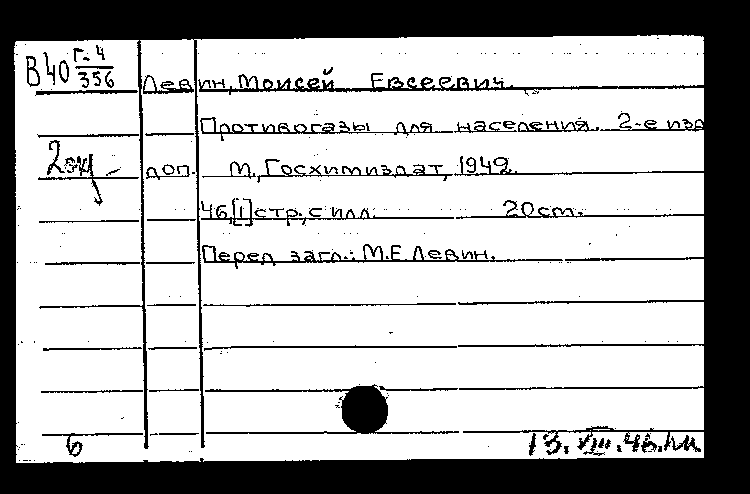 В40 Г-4/356
Левин, Моисей Евсеевич.
Противогазы для населения. 2-е изд
2 экз
доп. М., Госхимиздат, 1942.
46,[1] стр., с илл. 20 cm.
Перед загл.: М.Е. Левин.
6 13.VIII.46.